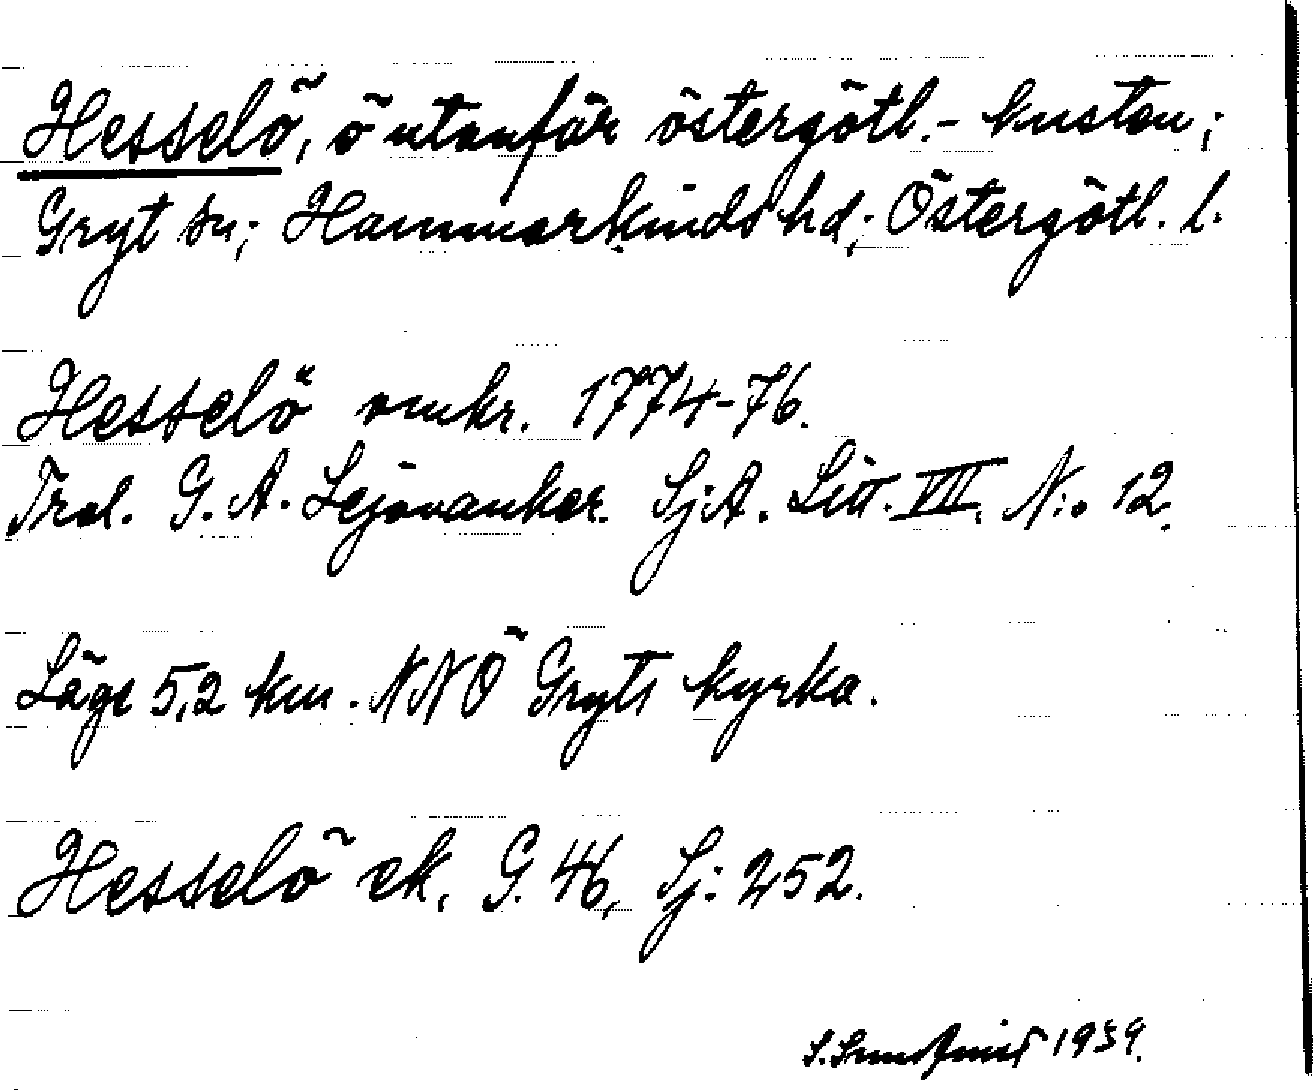 Hesselö, ö utanför östergötl.-kusten;
Gryt sn; Hammarkinds hd; Östergötl. l.
Hesselö omkr. 1774-76.
Trol. G. A. Lejonanker. SjA. Litt. VII. N:o 12.
Läge 5,2 km. NNÖ Gryts kyrka.
Hesselö ek. G. 46, Sj: 252.
S. 1939.